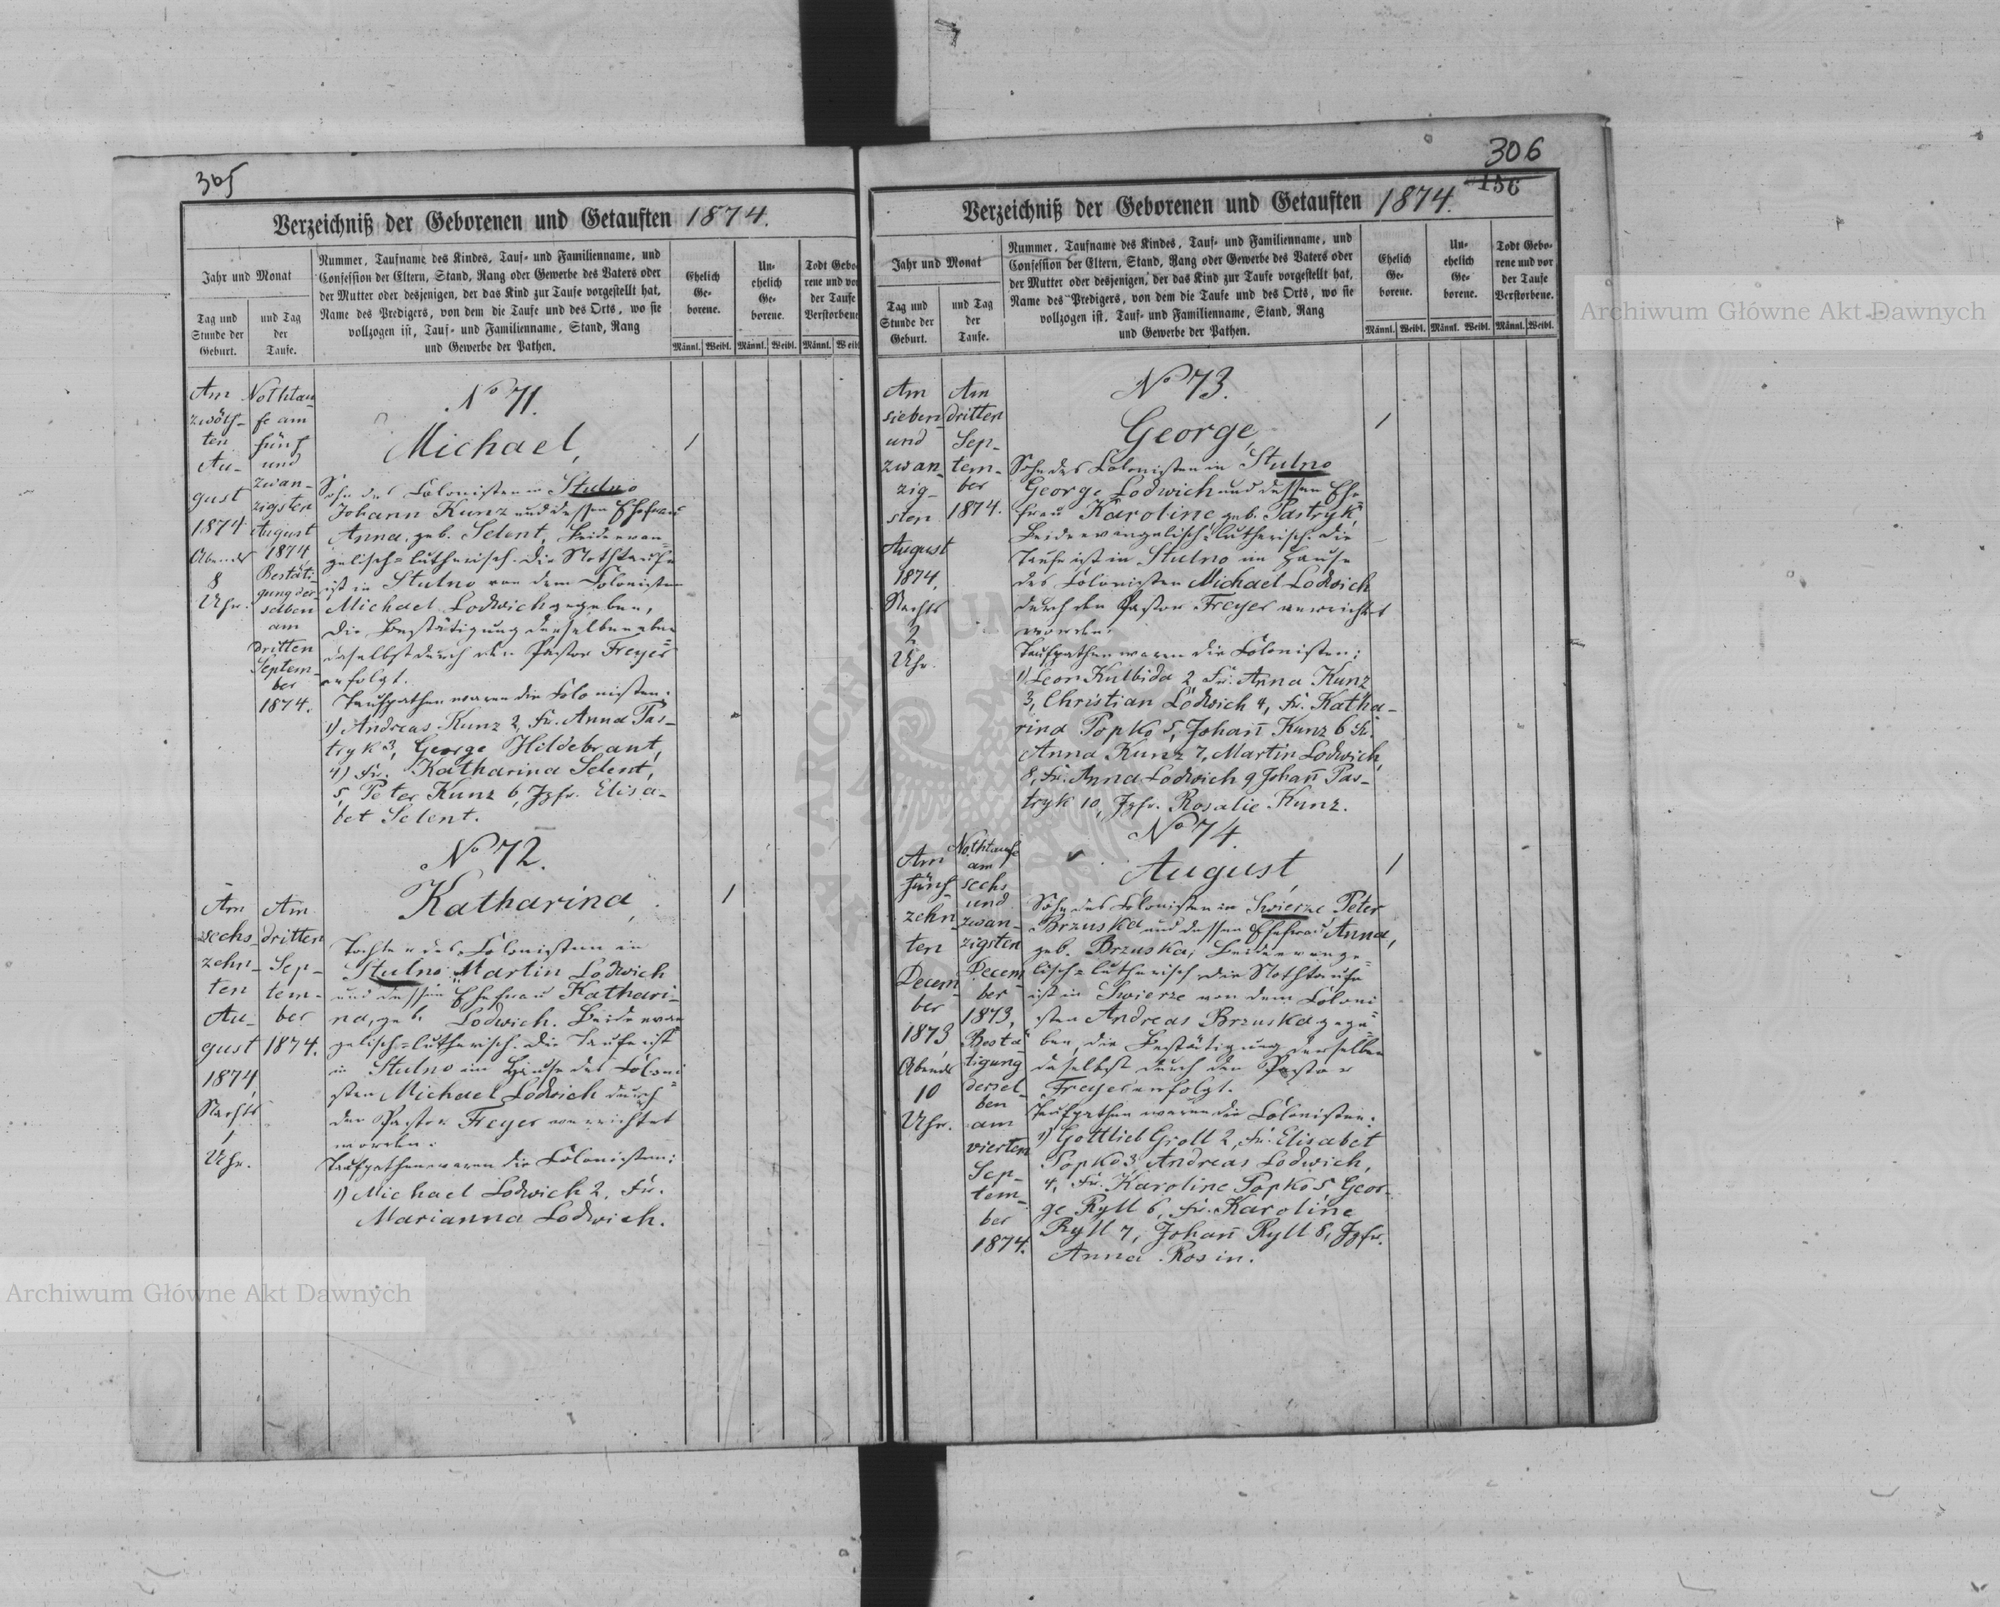 305
Verzeichniß der Geborenen und Getauften 1874.
Jahr und Monat
Tag und
Stunde der
Geburt.
und Tag
der
Taufe.
Nummer, Taufname des Kindes, Tauf- und Familienname, und
Confession der Eltern, Stand, Rang oder Gewerbe des Vaters oder
der Mutter oder desjenigen, der das Kind zur Taufe vorgestellt hat,
Name des Predigers, von dem die Taufe und des Orts, wo sie
vollzogen ist, Tauf- und Familienname, Stand, Rang
und Gewerbe der Pathen.
Ehelich
Ge-
borene.
Un-
ehelich
Ge-
borene.
Todt Gebo-
rene und vor
der Taufe
Verstorbene
Männl. Weibl. Männl. Weibl. Männl. Weibl
Am
zwölf-
ten
Au-
gust
1874
Abends
8
Uhr.
Nothtau-
fe am
fünf
und
zwan-
zigsten
August
1874
Bestäti-
gung der-
selben
am
dritten
Septem-
ber
1874.
No 71.
Michael,
1
Sohn des Colonisten in Stulno
Johann Kunz und dessen Ehefrau
Anna, geb. Selent, Beide evan-
gelisch=lutherisch. Die Nothtaufe
ist in Stulno von dem Colonisten
Michael Lodwich gegeben,
die Bestätigung derselben aber
daselbst durch den Pastor Freyer
erfolgt.
Taufpathen waren die Colonisten:
1) Andreas Kunz 2, Fr. Anna Pas-
tryk 3, George Hildebrant,
4) Fr. Katharina Selent,
5, Peter Kunz 6, Jgfr. Elisa-
bet Selent.
Am
sechs-
zehn-
ten
Au-
gust
1874
Nachts
1
Uhr.
Am
dritten
Sep-
tem-
ber
1874.
No 72.
Katharina,
1
Tochter des Colonisten in
Stulno Martin Lodwich
und dessen Ehefrau Kathari-
na, geb. Lodwich. Beide evan
gelisch=lutherisch. Die Taufe ist
in Stulno im Hause des Coloni-
sten Michael Lodwich durch
den Pastor Freyer verrichtet
worden.
Taufpathen waren die Colonisten:
1) Michael Lodwich 2, Fr.
Marianna Lodwich.
306
156
Verzeichniß der Geborenen und Getauften 1874.
Jahr und Monat
Tag und
Stunde der
Geburt.
und Tag
der
Taufe.
Nummer, Taufname des Kindes, Tauf- und Familienname, und
Confession der Eltern, Stand, Rang oder Gewerbe des Vaters oder
der Mutter oder desjenigen, der das Kind zur Taufe vorgestellt hat,
Name des Predigers, von dem die Taufe und des Orts, wo sie
vollzogen ist, Tauf- und Familienname, Stand, Rang
und Gewerbe der Pathen.
Ehelich
Ge-
borene.
Un-
ehelich
Ge-
borene.
Todt Gebo-
rene und vor
der Taufe
Verstorbene.
Männl. Weibl. Männl. Weibl. Männl. Weibl.
Am
sieben
und
zwan-
zig-
sten
August
1874,
Nachts
2
Uhr.
Am
dritten
Sep-
tem-
ber
1874.
No 73.
George,
1
Sohn des Colonisten in Stulno
George Lodwich und dessen Ehe-
frau Karoline geb. Pastryk,
Beide evangelisch=lutherisch. Die
Taufe ist in Stulno im Hause
des Colonisten Michael Lodwich
durch den Pastor Freyer verrichtet
worden.
Taufpathen waren die Colonisten:
1) Leon Kulbida 2 Fr. Anna Kunz
3, Christian Lodwich 4, Fr. Katha-
rina Popko 5, Johan̄ Kunz 6 Fr.
Anna Kunz 7, Martin Lodwich,
8, Fr. Anna Lodwich 9 Johan̄ Pas-
tryk 10, Jgfr. Rosalie Kunz.
Am
fünf-
zehn-
ten
Decem-
ber
1873
Abends
10
Uhr.
Nothtaufe
am
sechs
und
zwan-
zigsten
Decem-
ber
1873,
Bestä-
tigung
dersel-
ben
am
vierten
Sep-
tem-
ber
1874.
No 74.
August,
1
Sohn des Colonisten in Swierze Peter
Brzuska und dessen Ehefrau Anna,
geb. Brzuska, Beide evange-
lisch=lutherisch. Die Nothtaufe
ist in Swierze von dem Coloni
sten Andreas Brzuska gege-
ben, die Bestätigung derselben
daselbst durch den Pastor
Freyer erfolgt.
Taufpathen waren die Colonisten:
1) Gottlieb Groll 2, Fr. Elisabet
Popko 3, Andreas Lodwich,
4, Fr. Karoline Popko 5 Geor-
ge Ryll 6, Fr. Karoline
Ryll 7, Johan̄ Ryll 8, Jgfr.
Anna Rosin.
Archiwum Główne Akt Dawnych
Archiwum Główne Akt Dawnych